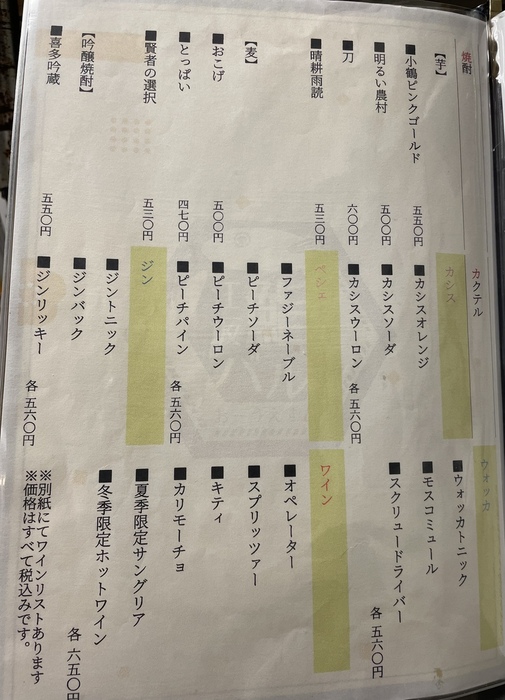 焼酎
【芋】
■小鶴ピンクゴールド 五五〇円
■明るい農村 五〇〇円
■刀 六〇〇円
■晴耕雨読 五三〇円
【麦】
■おこげ 五〇〇円
■とっぱい 四七〇円
■賢者の選択 五三〇円
【吟醸焼酎】
■喜多吟蔵 五五〇円
カクテル
カシス
■カシスオレンジ
■カシスソーダ
■カシスウーロン 各 五六〇円
ペシェ
■ファジーネーブル
■ピーチソーダ
■ピーチウーロン
■ピーチパイン 各 五六〇円
ジン
■ジントニック
■ジンバック
■ジンリッキー 各 五六〇円
ウォッカ
■ウォッカトニック
■モスコミュール
■スクリュードライバー 各 五六〇円
ワイン
■オペレーター
■スプリッツァー
■キティ
■カリモーチョ
■夏季限定サングリア
■冬季限定ホットワイン 各 六五〇円
※別紙にてワインリストあります
※価格はすべて税込みです。